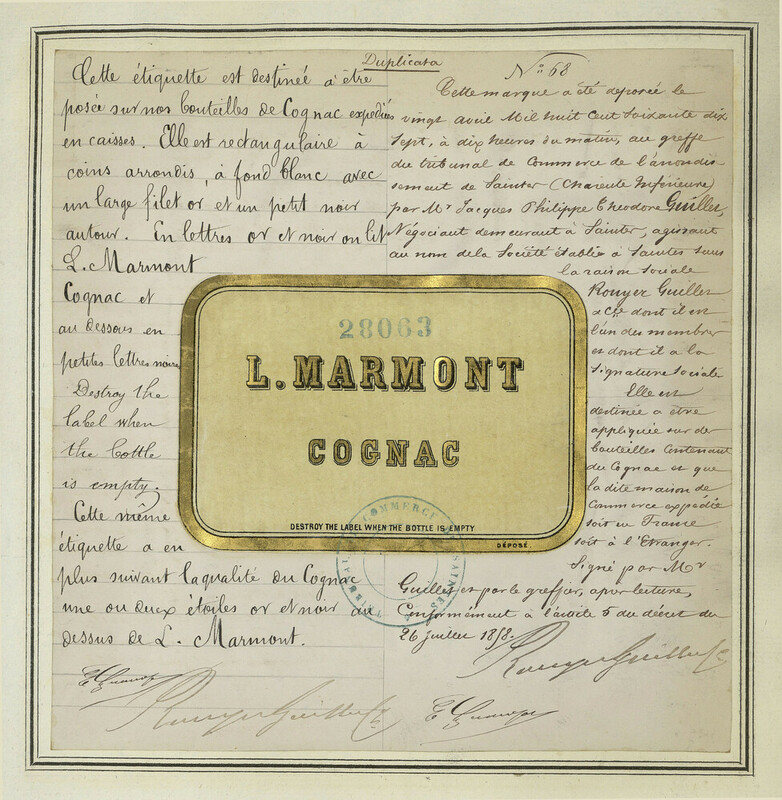 Duplicata
Cette étiquette est destinée à être
posée sur nos bouteilles de Cognac expediées
en caisses. Elle est rectangulaire à
coins arrondis, à fond blanc avec
un large filet or et un petit noir
autour. En lettres or et noir on lit
L. Marmont
Cognac et
au dessous en
petites lettres noires
Destroy the
label when
the bottle
is empty.
Cette même
étiquette a en
plus suivant la qualité du Cognac
une ou deux étoiles or et noir au
dessus de L. Marmont.
Rouyer Guillet & Cie
No 68
Cette marque a été déposée le
vingt avril Mil huit cent soixante dix
sept, à dix heures du matin, au greffe
du tribunal de Commerce de l'arrondis
sement de Saintes (Charente Inférieure)
par Mr Jacques Philippe Théodore Guillet,
Négociant demeurant à Saintes, agissant
au nom de la Société établie à Saintes sous
la raison sociale
Rouyer Guillet
& Cie dont il est
l'un des membres
et dont il a la
signature sociale
Elle est
destinée a être
appliquée sur des
bouteilles contenant
du Cognac et que
la dite maison de
Commerce expédie
soit en France
soit à l'Etranger.
Signé par Mr
Guillet et par le greffier, après lecture,
Conformément à l'article 5 du décret du
26 juillet 1858.
Rouyer Guillet & Cie
28063
L. MARMONT
COGNAC
DESTROY THE LABEL WHEN THE BOTTLE IS EMPTY
DÉPOSÉ.
TRIBUNAL DE COMMERCE DE SAINTES